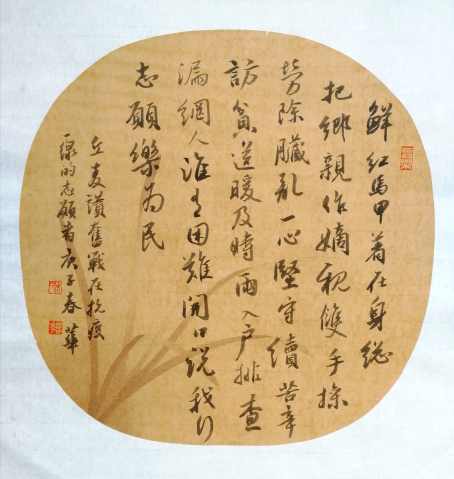 鮮紅馬甲着在身總
把鄉親作嫡親雙手操
勞除臟亂一心堅守續苦辛
訪貧送暖及時雨入戶排查
漏網人誰有困難開口說我行
志願樂為民
丘麦讚奮戰在抗疫
一線的志願者庚子春華